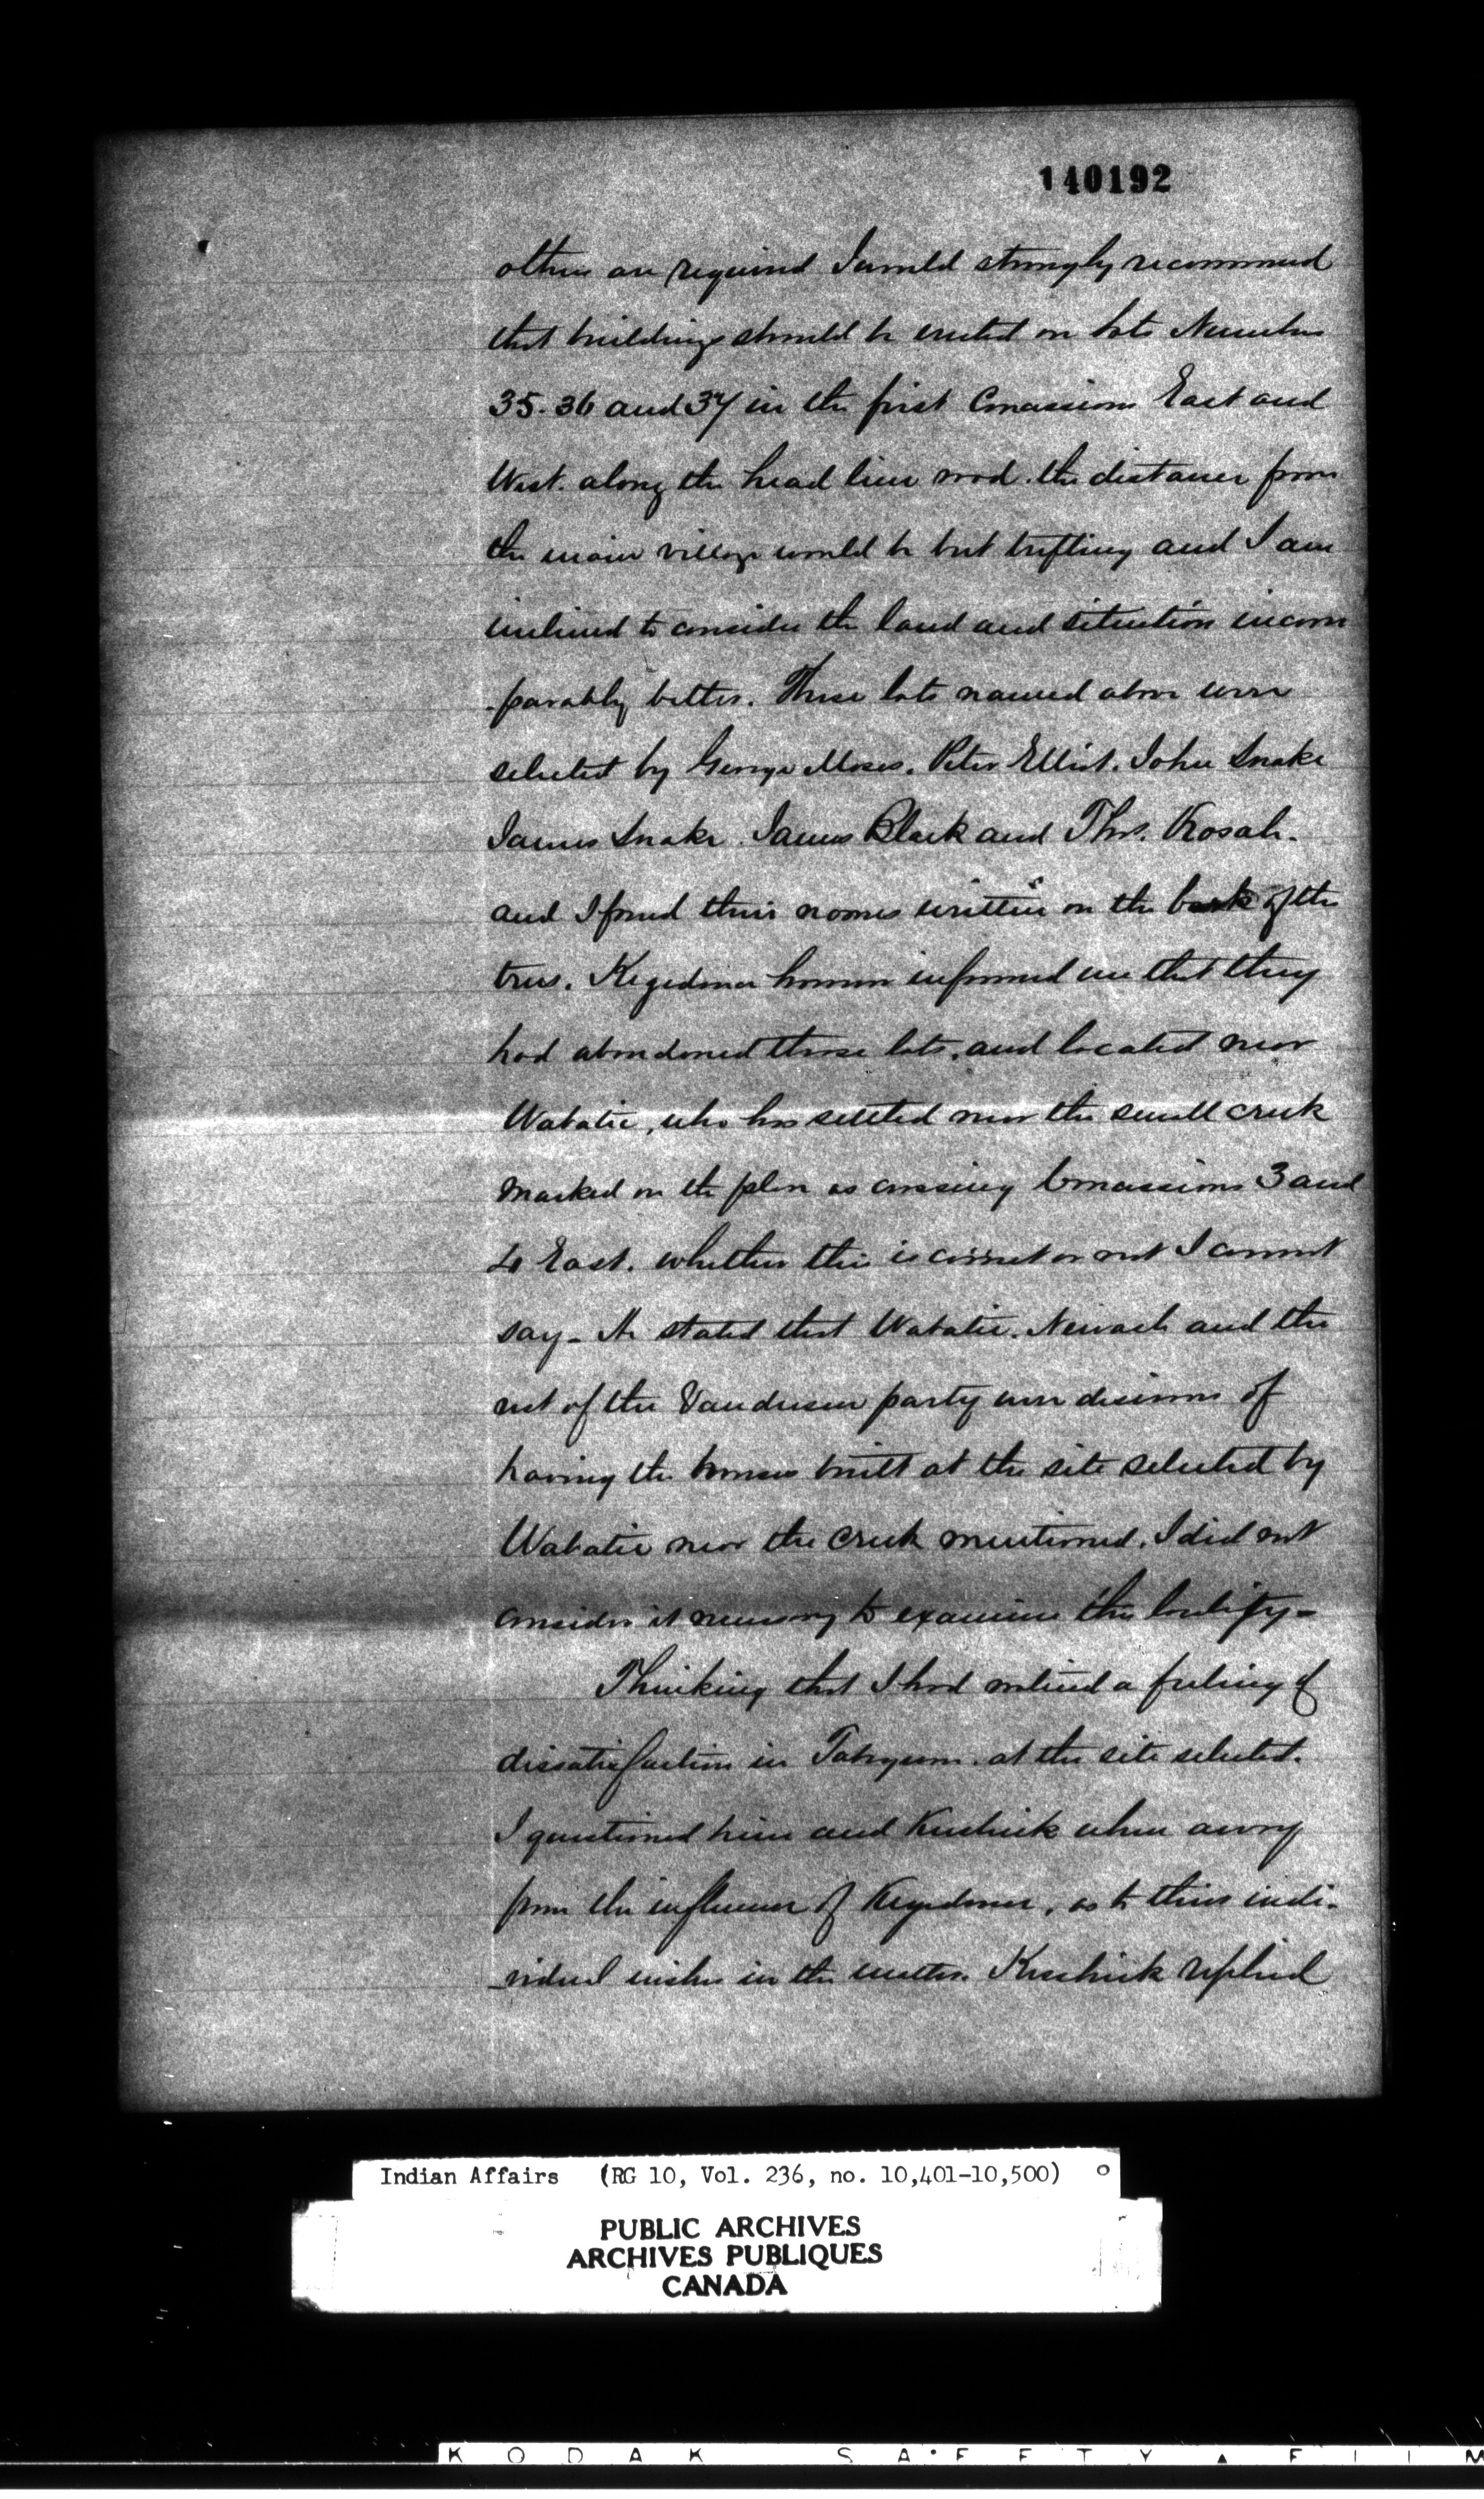 140192
others are required I would strongly recommend
that buildings should be erected on Lots Numbers
35. 36 and 37 in the first Concessions East and
West. along the head line road. the distance from
the main village would be but trifling and I am
inclined to consider the land and situation incom
-parably better. These lots named above were
selected by George Moses. Peter Elliot. John Snake
James Snake. James Black and Thos. Kosah.
and I found their names written on the bark of the
trees. Kegedonce however informed me that they
had abandoned those lots, and located near
Wabatic, who has settled near the small creek
marked on the plan as crossing Concessions 3 and
4 East. whether this is correct or not I cannot
say - He stated that Wabatic. Newash and the
rest of the Vandusen party were desirous of
having the houses built at the site selected by
Wabatic near the creek mentioned. I did not
consider it necessary to examine this locality -
Thinking that I had noticed a feeling of
dissatisfaction in at the site selected.
I questioned him and Kuchick when away
from the influence of Kegedonce, as to their indi-
-vidual wishes in the matter. Kuchick replied
Indian Affairs (RG 10, Vol. 236, no. 10,401-10,500)
PUBLIC ARCHIVES
ARCHIVES PUBLIQUES
CANADA
KODAK SAFETY FILM